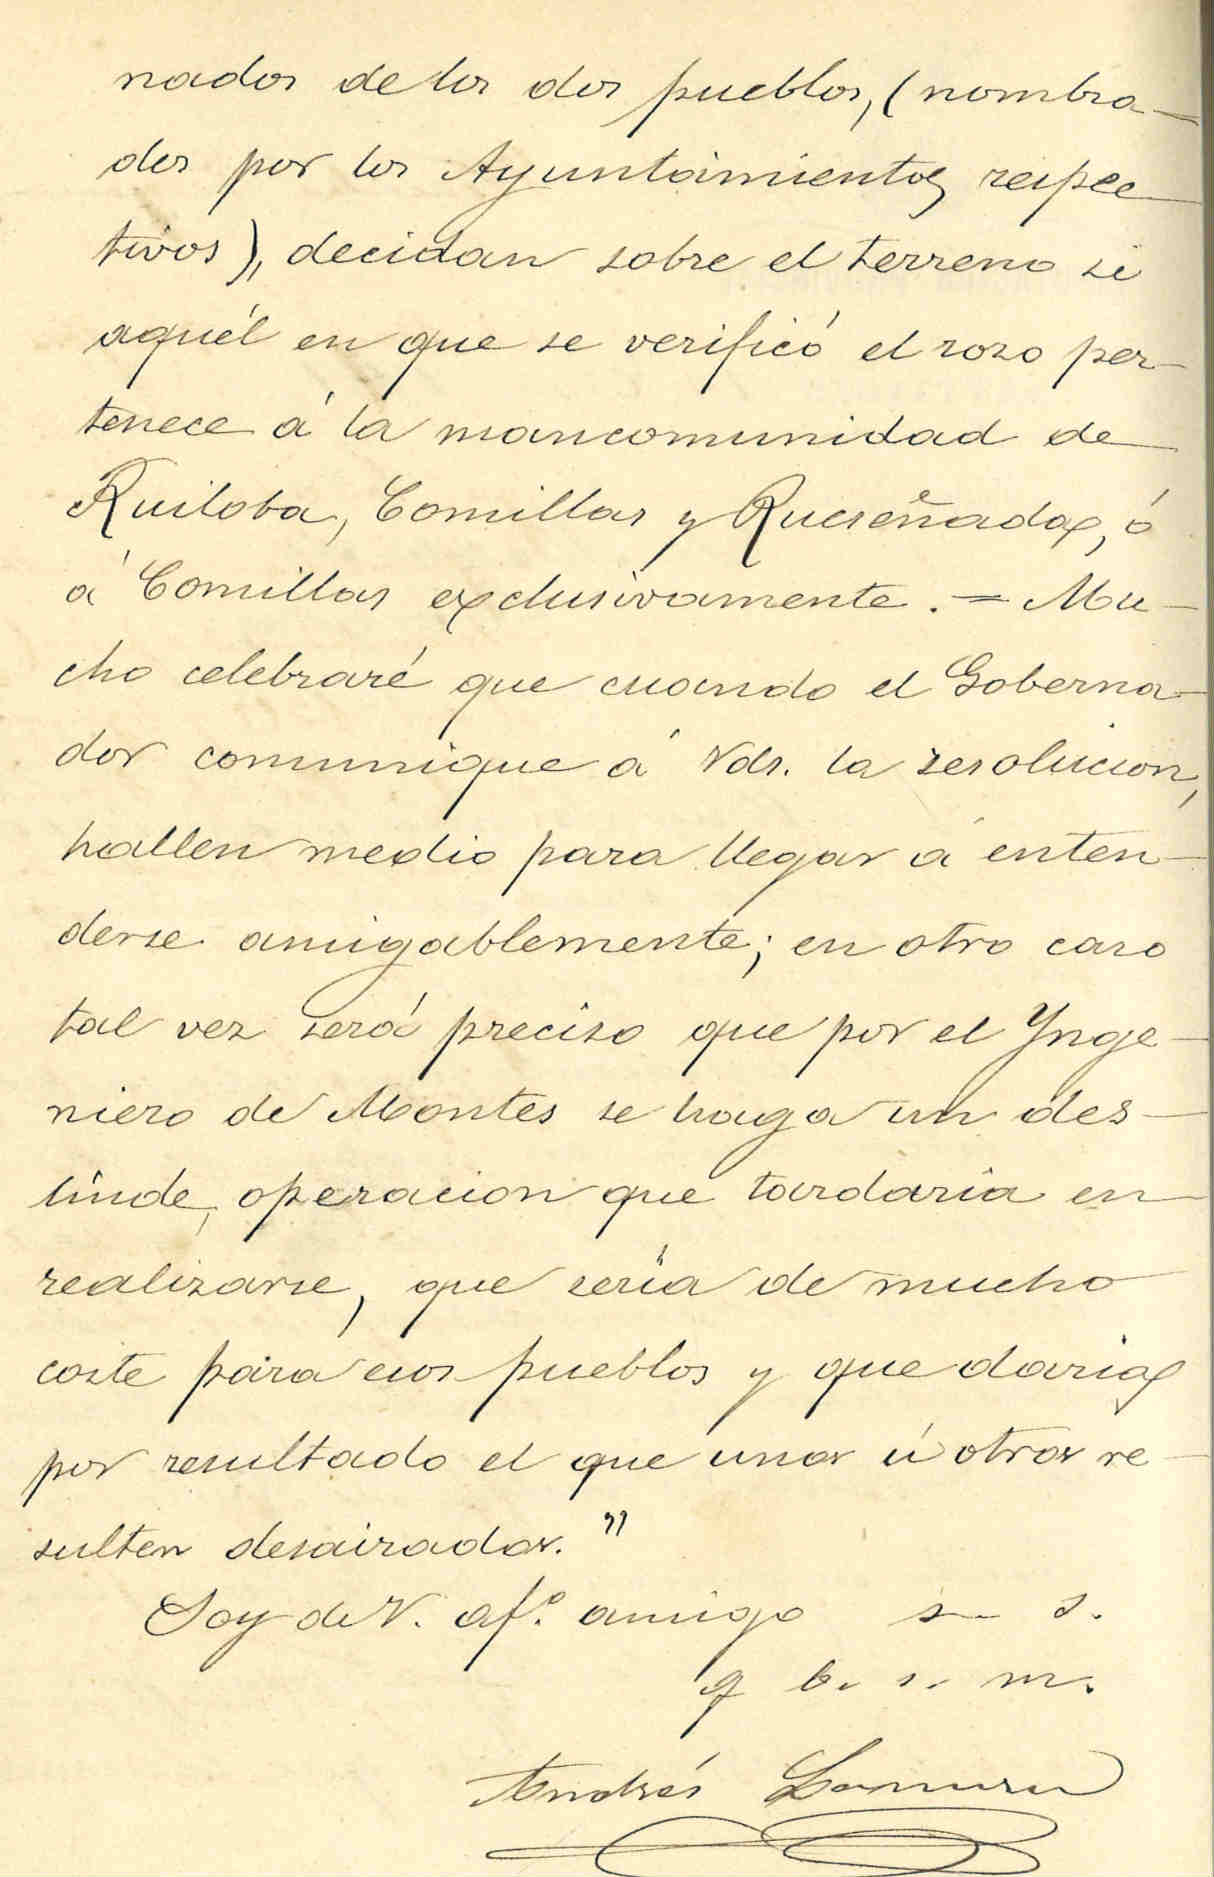 nados de los dos pueblos, (nombra-
dos por los Ayuntamientos respec
tivos), decidan sobre el terreno si
aquél en que se verificó el rozo per-
tenece á la mancomunidad de
Ruiloba, Comillas y Rueseñada, ó
á Comillas exclusivamente. = Mu-
cho celebraré que cuando el Goberna-
dor comunique á Vds. la resolucion,
hallen medio para llegar á enten-
derse amigablemente; en otro caso
tal vez será preciso que por el Ynge-
niero de Montes se haga un des-
linde, operacion que tardaria en
realizarse, que seria de mucho
coste para esos pueblos y que daria
por resultado el que unos ú otros re-
sulten desairados."
Soy de V. af.º amigo s. s.
q b. s. m.
Andrés